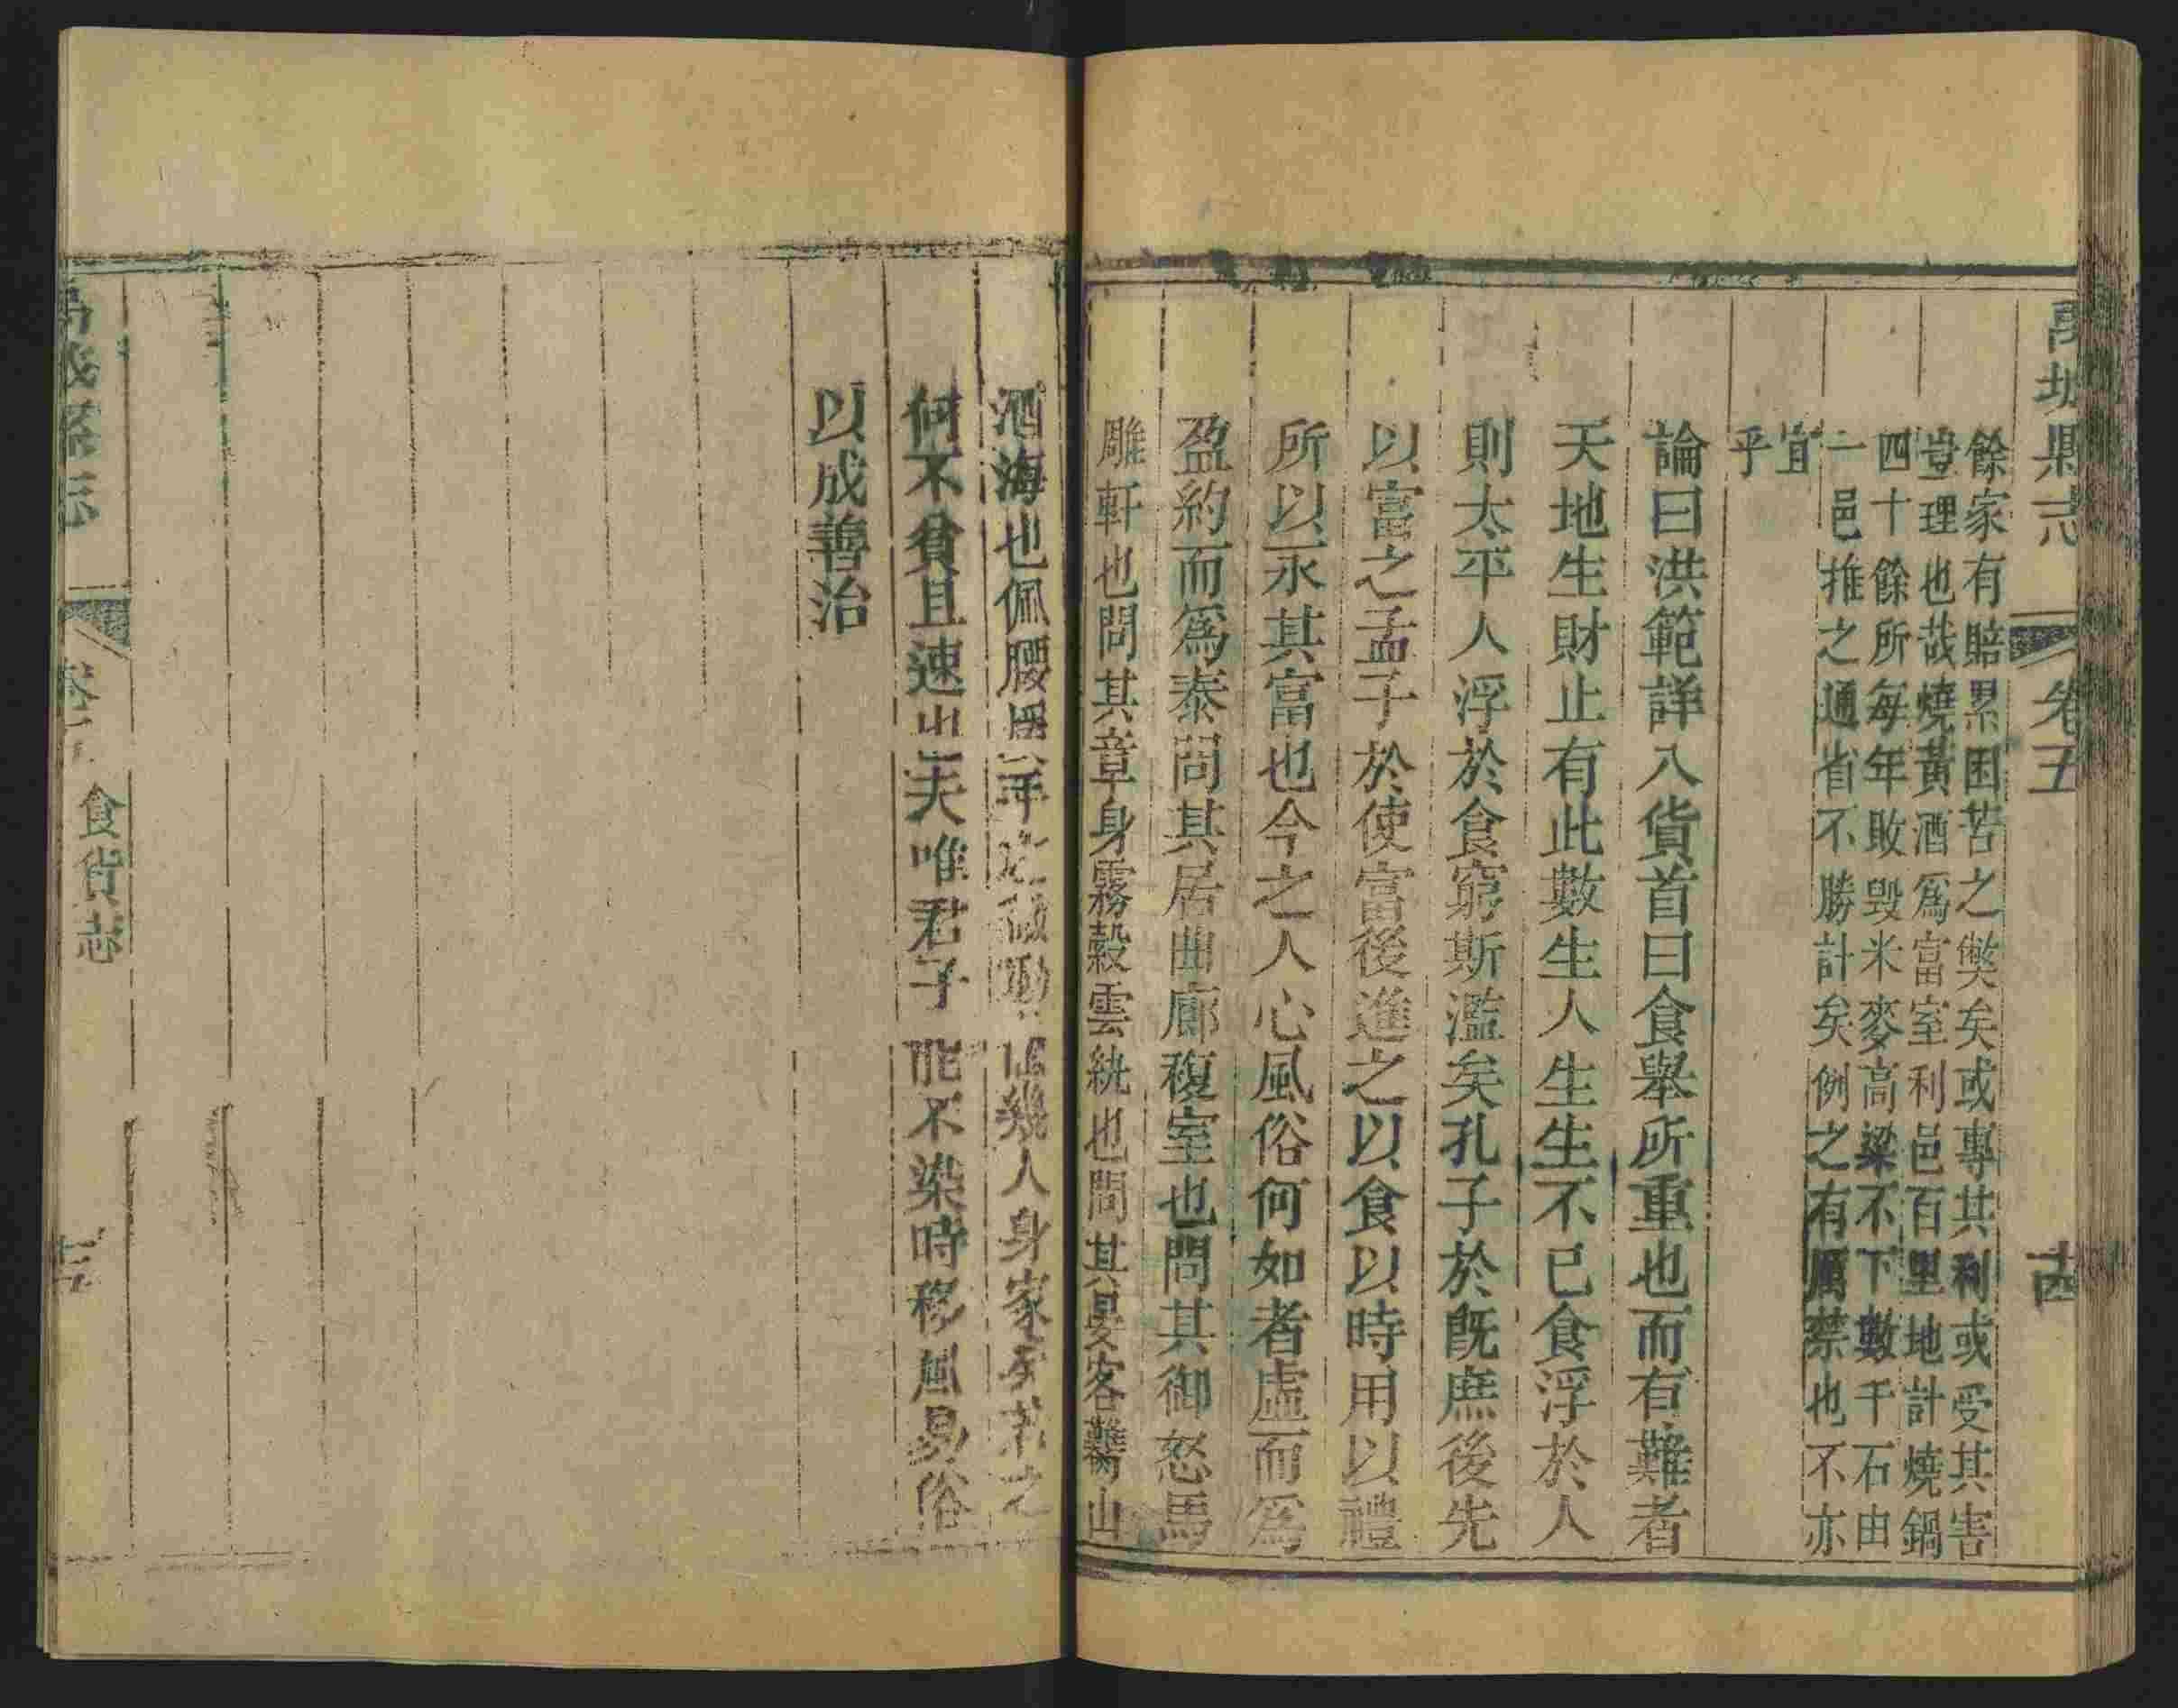 禹城縣志
卷五
十四
餘家有賠累困苦之獘矣或專其利或受其害
豈理也哉燒黃酒爲富室利邑百里地計燒鍋
四十餘所每年敗毁米麥高粱不下數千石由
一邑推之通省不勝計矣例之有厲禁也不亦
宜
乎
論曰洪範詳八貨首曰食舉所重也而有難者
天地生財止有此數生人生生不已食浮於人
則太平人浮於食窮斯濫矣孔子於旣庶後先
以富之孟子於使富後進之以食以時用以禮
所以永其富也今之人心風俗何如者虛而爲
盈約而爲泰問其居曲廊複室也問其御怒馬
雕軒也問其章身霧縠雲綂也問其晏客蘱山
酒海也佩腰
人身家
之
何不貧且速
夫唯君子能不染時移風易俗
以成善治
縣志
食貨志